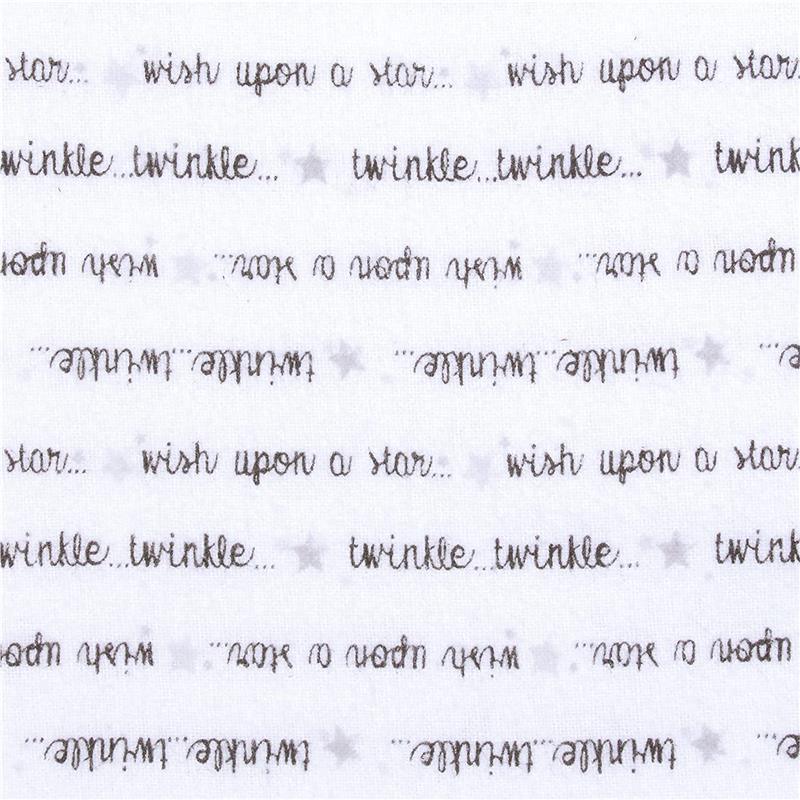 star... wish upon a star... wish upon a star
winkle...twinkle... twinkle...twinkle... twink
upon a star... wish upon a star... wish upon
e... twinkle...twinkle... twinkle...twinkle...
star... wish upon a star... wish upon a star
winkle...twinkle... twinkle...twinkle... twink
upon a star... wish upon a star... wish upon
e... twinkle...twinkle... twinkle...twinkle...